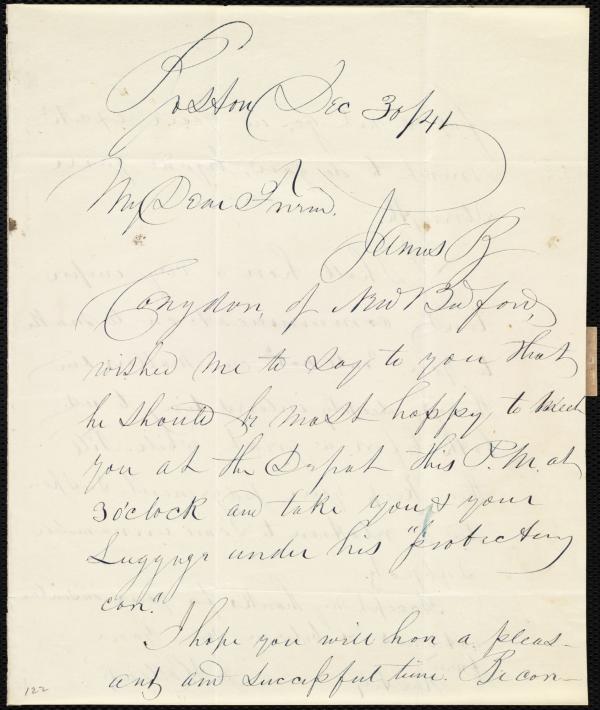 Boston Dec 30/41
My Dear Friend.
James B
Congdon, of New Bedford,
wished me to say to you that
he should be most happy to meet
you at the Depot this P.M. at
3 o'clock and take you & your
Luggage under his "protecting
care."
I hope you will have a pleas-
ant and successful time. Be care-
122